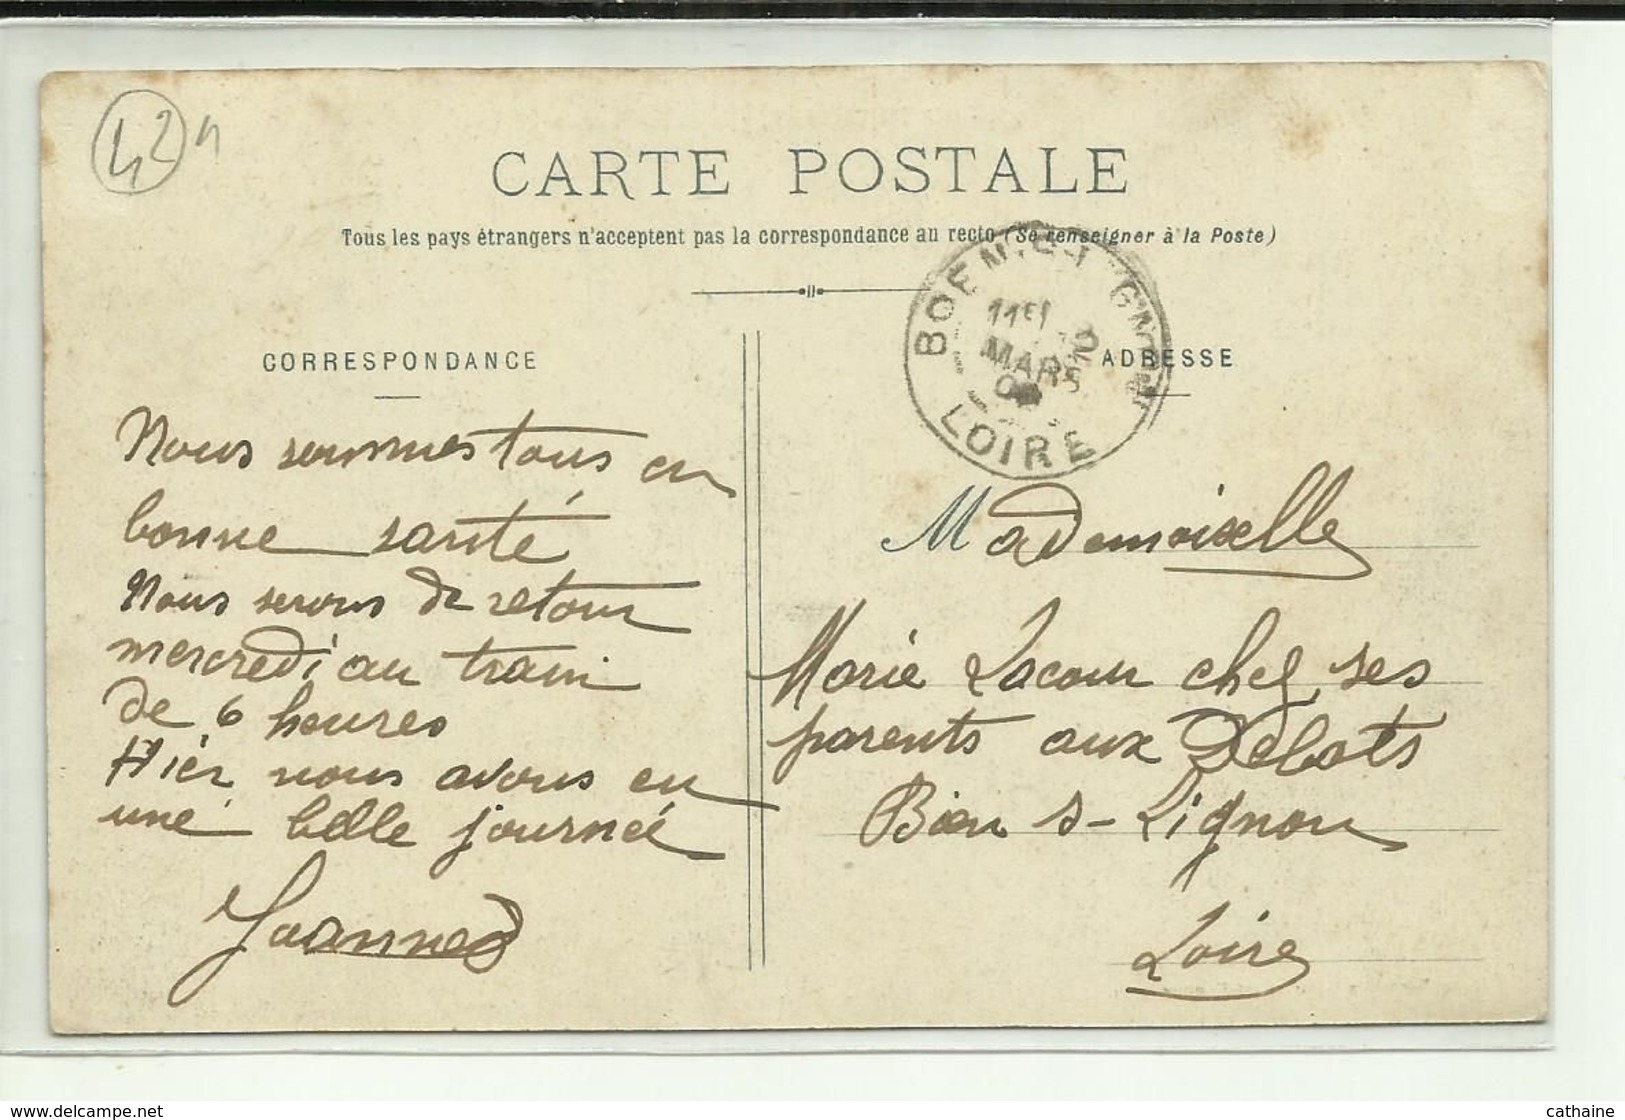 42 n
CARTE POSTALE
Tous les pays étrangers n'acceptent pas la correspondance au recto (Se renseigner à la Poste)
BOEN-S-LIGNON
11E
MARS
LOIRE
CORRESPONDANCE
ADRESSE
Nous sommes tous en
bonne santé
Nous serons de retour
mercredi au train
de 6 heures
Hier nous avons eu
une belle journée
Joannes
Mademoiselle
Marie Lacour chez ses
parents aux Débats
Boën s- Lignon
Loire
cathaine